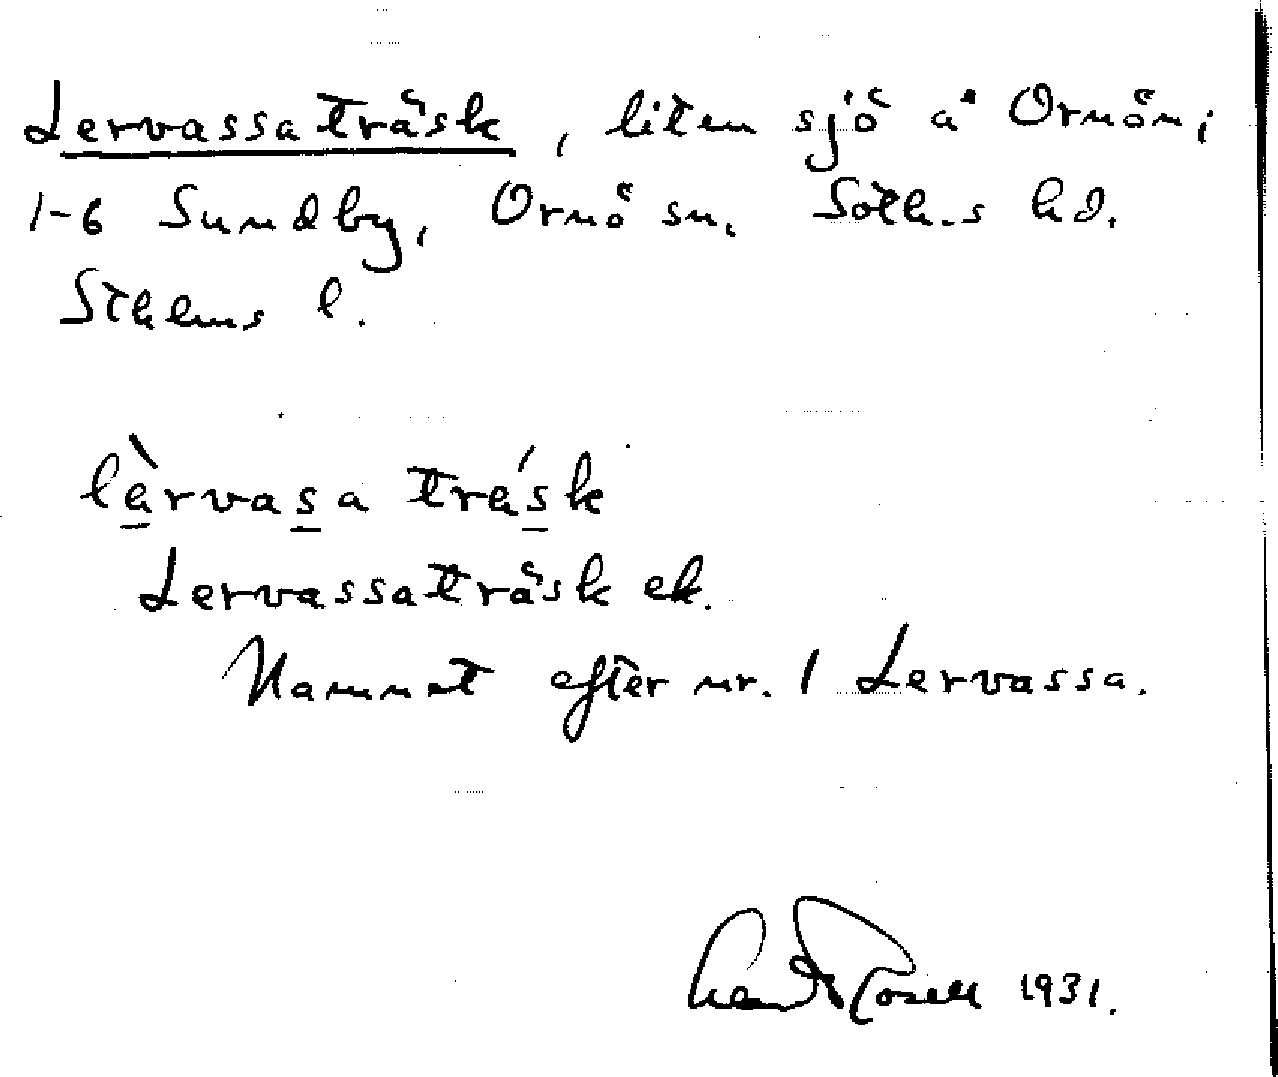 Lervassaträsk, liten sjö å Ornön,
1-6 Sundby, Ornö sn. Soth.s hd.
Sthlms l.
làrvasa trásk
Lervassaträsk ek.
Namnet efter nr. 1 Lervassa.
1931.